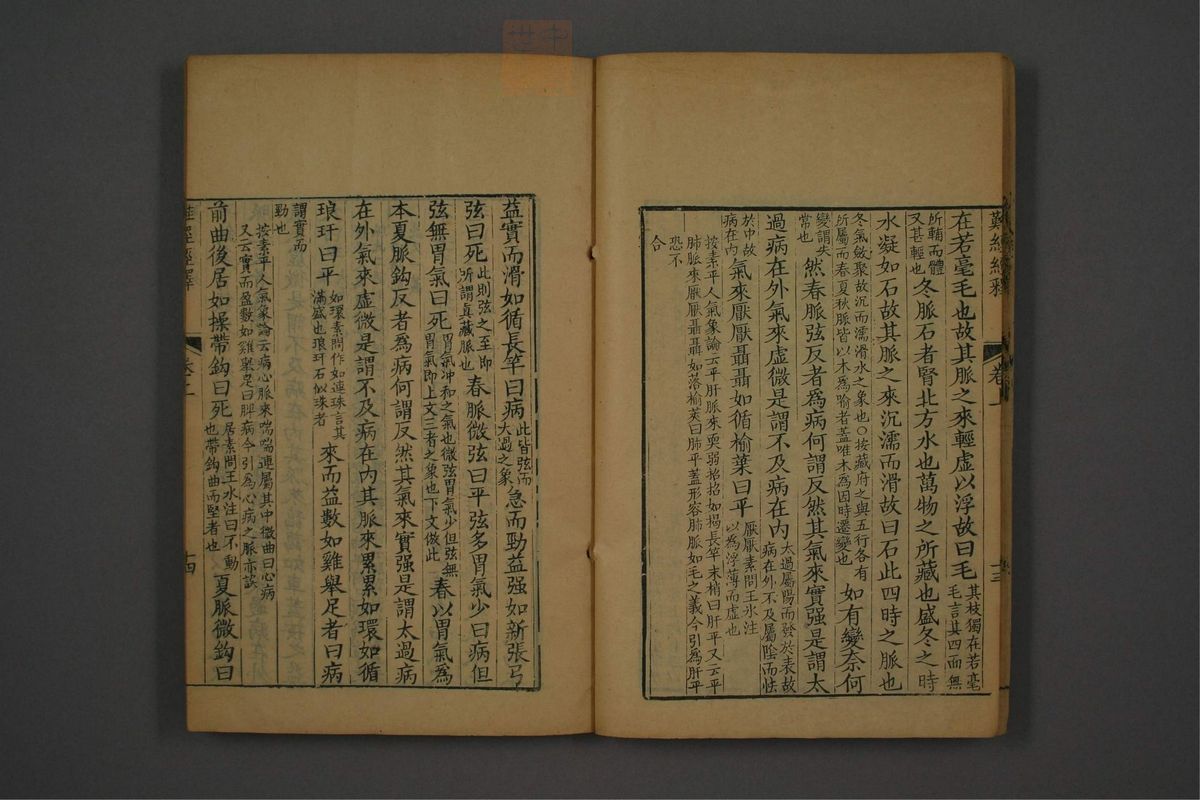 難經經釋 卷上 十三
在若毫毛也故其脈之來輕虛以浮故曰毛其枝獨在若毫毛言其四面無
所輔而體又甚輕也冬脈石者腎北方水也萬物之所藏也盛冬之時
水凝如石故其脈之來沉濡而滑故曰石此四時之脈也
冬氣斂聚故沉而濡滑水之象也○按藏府之與五行各有所屬而春夏秋脈皆以木為喻者蓋唯木為因時遷變也如有變奈何
變謂失常也然春脈弦反者為病何謂反然其氣來實强是謂太
過病在外氣來虛微是謂不及病在內太過屬陽而發於表故病在外不及屬陰而怯
於中故病在內氣來厭厭聶聶如循榆葉曰平厭厭素問王氷注以為浮薄而虛也
按素平人氣象論云平肝脈來耎弱招招如揭長竿末梢曰肝平又云平
肺脈來厭厭聶聶如落榆莢曰肺平蓋形容肺脈如毛之義今引為肝平
恐不合
益實而滑如循長竿曰病此皆弦而太過之象急而勁益强如新張弓
弦曰死此則弦之至即所謂真藏脈也春脈微弦曰平弦多胃氣少曰病但
弦無胃氣曰死胃氣沖和之氣也微弦胃氣少但弦無胃氣即上文三者之象也下文倣此春以胃氣為
本夏脈鈎反者為病何謂反然其氣來實强是謂太過病
在外氣來虛微是謂不及病在內其脈來累累如環如循
琅玕曰平如環素問作如連珠言其滿盛也琅玕石似珠者來而益數如雞舉足者曰病
謂實而勁也
按素平人氣象論云病心脈來喘喘連屬其中微曲曰心病
又云實而盈數如雞舉足曰脾病今引為心病之脈亦誤
前曲後居如操帶鈎曰死居素問王氷注曰不動也帶鈎曲而堅者也夏脈微鈎曰
難經經釋 卷上 十四